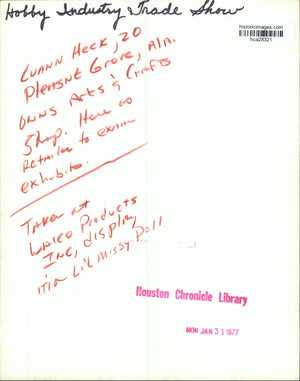 Hobby Industry Trade Show
historicimages.com
hca28321
Luann Heck, 20
Pleasnt Grove, Ala.
Owns Arts & Crafts
Shop. Here as
Retailer to exam
exhibits.
Taken at
Walco Products
Inc, display
with Li'l Missy Doll
Houston Chronicle Library
MON JAN 31 1977